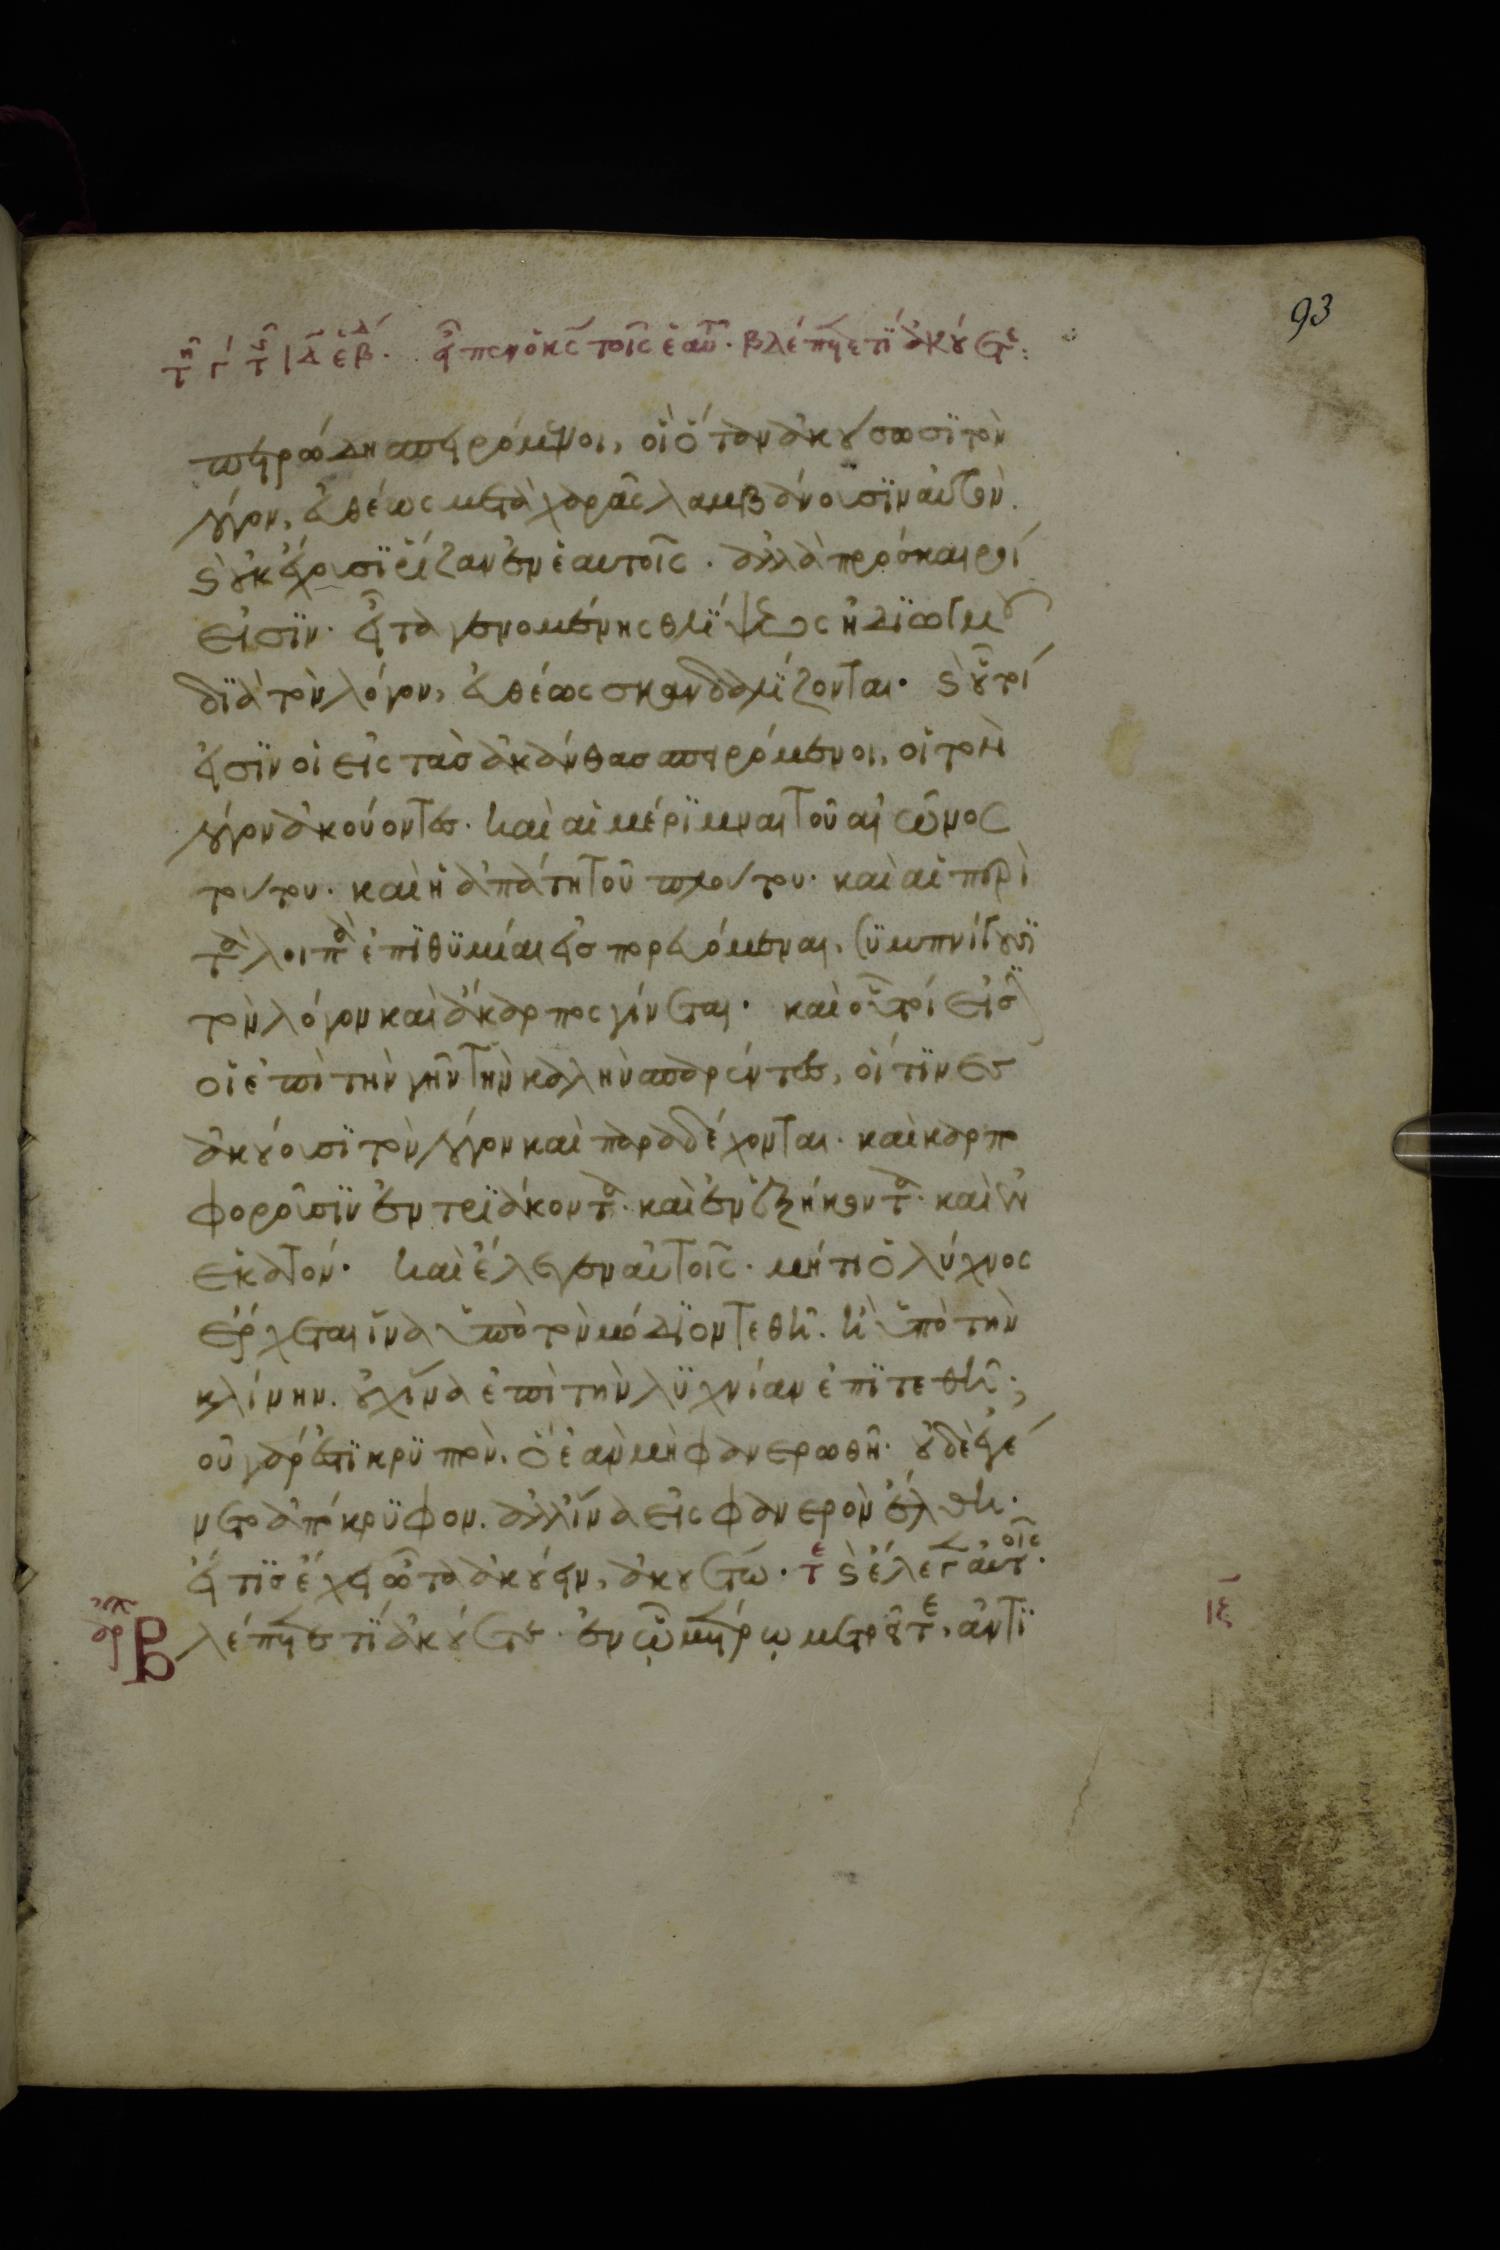 93
εἶπεν ὁ κς τοῖς ἑαυτ. βλέπετε τί ἀκούετε:
πετρώδη σπειρόμενοι, οἳ ὅταν ἀκούσωσι τὸν
λόγον, εὐθέως μετὰ χαρᾶς λαμβάνουσιν αὐτὸν.
ϛ οὐκ ἔχουσι ῥίζαν ἐν ἑαυτοῖς. ἀλλὰ πρόσκαιροί
εἰσϊν. εἶτα γενομένης θλίψεως ἢ διωγμοῦ
διὰ τὸν λόγον, εὐθέως σκανδαλίζονται. ϛ οὗτοί
εἰσϊν οἱ εἰς τὰς ἀκάνθας σπειρόμενοι, οἱ τὸν
λόγον ἀκούοντες. καὶ αἱ μέριμναι τοῦ αἰῶνος
τούτου. καὶ ἡ ἀπάτη τοῦ πλούτου. καὶ αἱ περὶ
τὰ λοιπὰ ἐπϊθϋμίαι εἰσπορευόμεναι, συμπνίγουσϊ
τὸν λόγον καὶ ἄκαρπος γίνεται. καὶ οὗτοί εἰσϊν
οἱ ἐπὶ τὴν γῆν τὴν καλὴν σπαρέντες, οἵτϊνες
ἀκούουσϊ τὸν λόγον καὶ παραδέχονται. καὶ καρπο
φοροῦσϊν ἐν τρϊάκοντα. καὶ ἐν ἑξήκοντα. καὶ ἐν
ἑκατόν. καὶ ἔλεγεν αὐτοῖς. μήτι ὁ λύχνος
ἔρχεται ἵνα ὑπὸ τὸν μόδϊον τεθῆ. ἢ ὑπὸ τὴν
κλίνην. οὐχ ἵνα ἐπὶ τὴν λϋχνίαν ἐπϊτεθῆ;
οὐ γάρ ἐστϊ κρϋπτὸν. ὃ ἐὰν μὴ φανερωθῆ. οὐδὲ ἐγέ
νετο ἀπόκρϋφον. ἀλλ ἵνα εἰς φανερὸν ἔλθη.
εἴ τϊς ἔχει ὦτα ἀκούειν, ἀκουέτω. ϛ ἔλεγεν αὐτοῖς.
ἀρχ Βλέπετε τί ἀκούετε. ἐν ὧ μέτρω μετρεῖτε, ἀντϊ